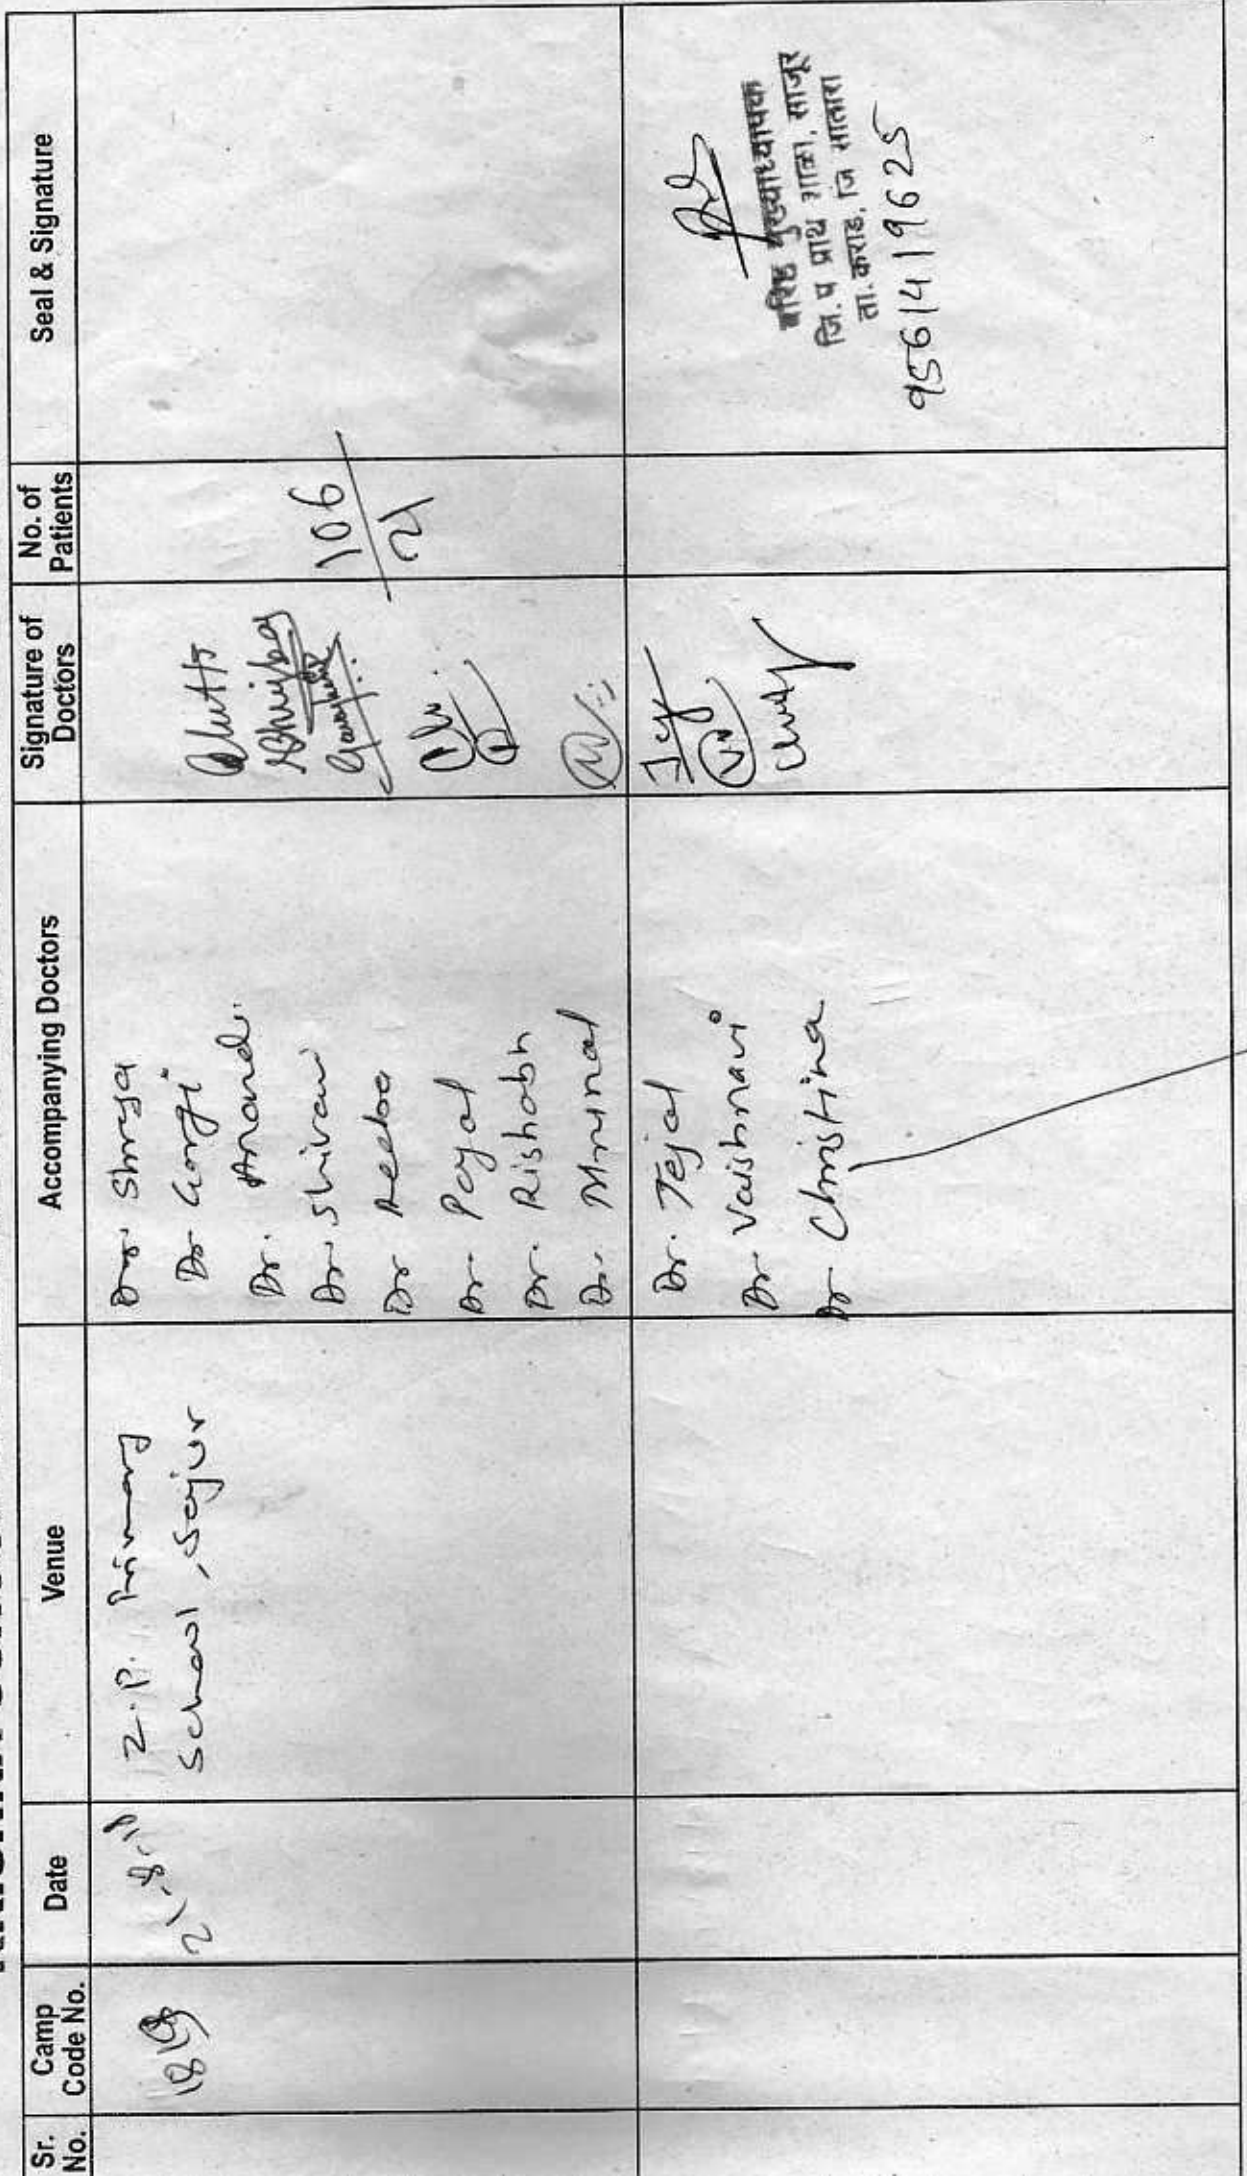 Sr. No.
Camp Code No.
Date
Venue
Accompanying Doctors
Signature of Doctors
No. of Patients
Seal & Signature
21-8-18
Z.P. Primary
School, Sajur
Dr. Shreya
Dr Gargi
Dr.
Dr. Shivani
Dr
Dr. Payal
Dr. Rishabh
Dr. Mrunal
106
21
Dr. Tejal
Dr. Vaishnavi
Dr Christina
वरिष्ठ मुख्याध्यापक
जि. प प्राथ शाळा, साजूर
ता. कराड, जि सातारा
9561419625